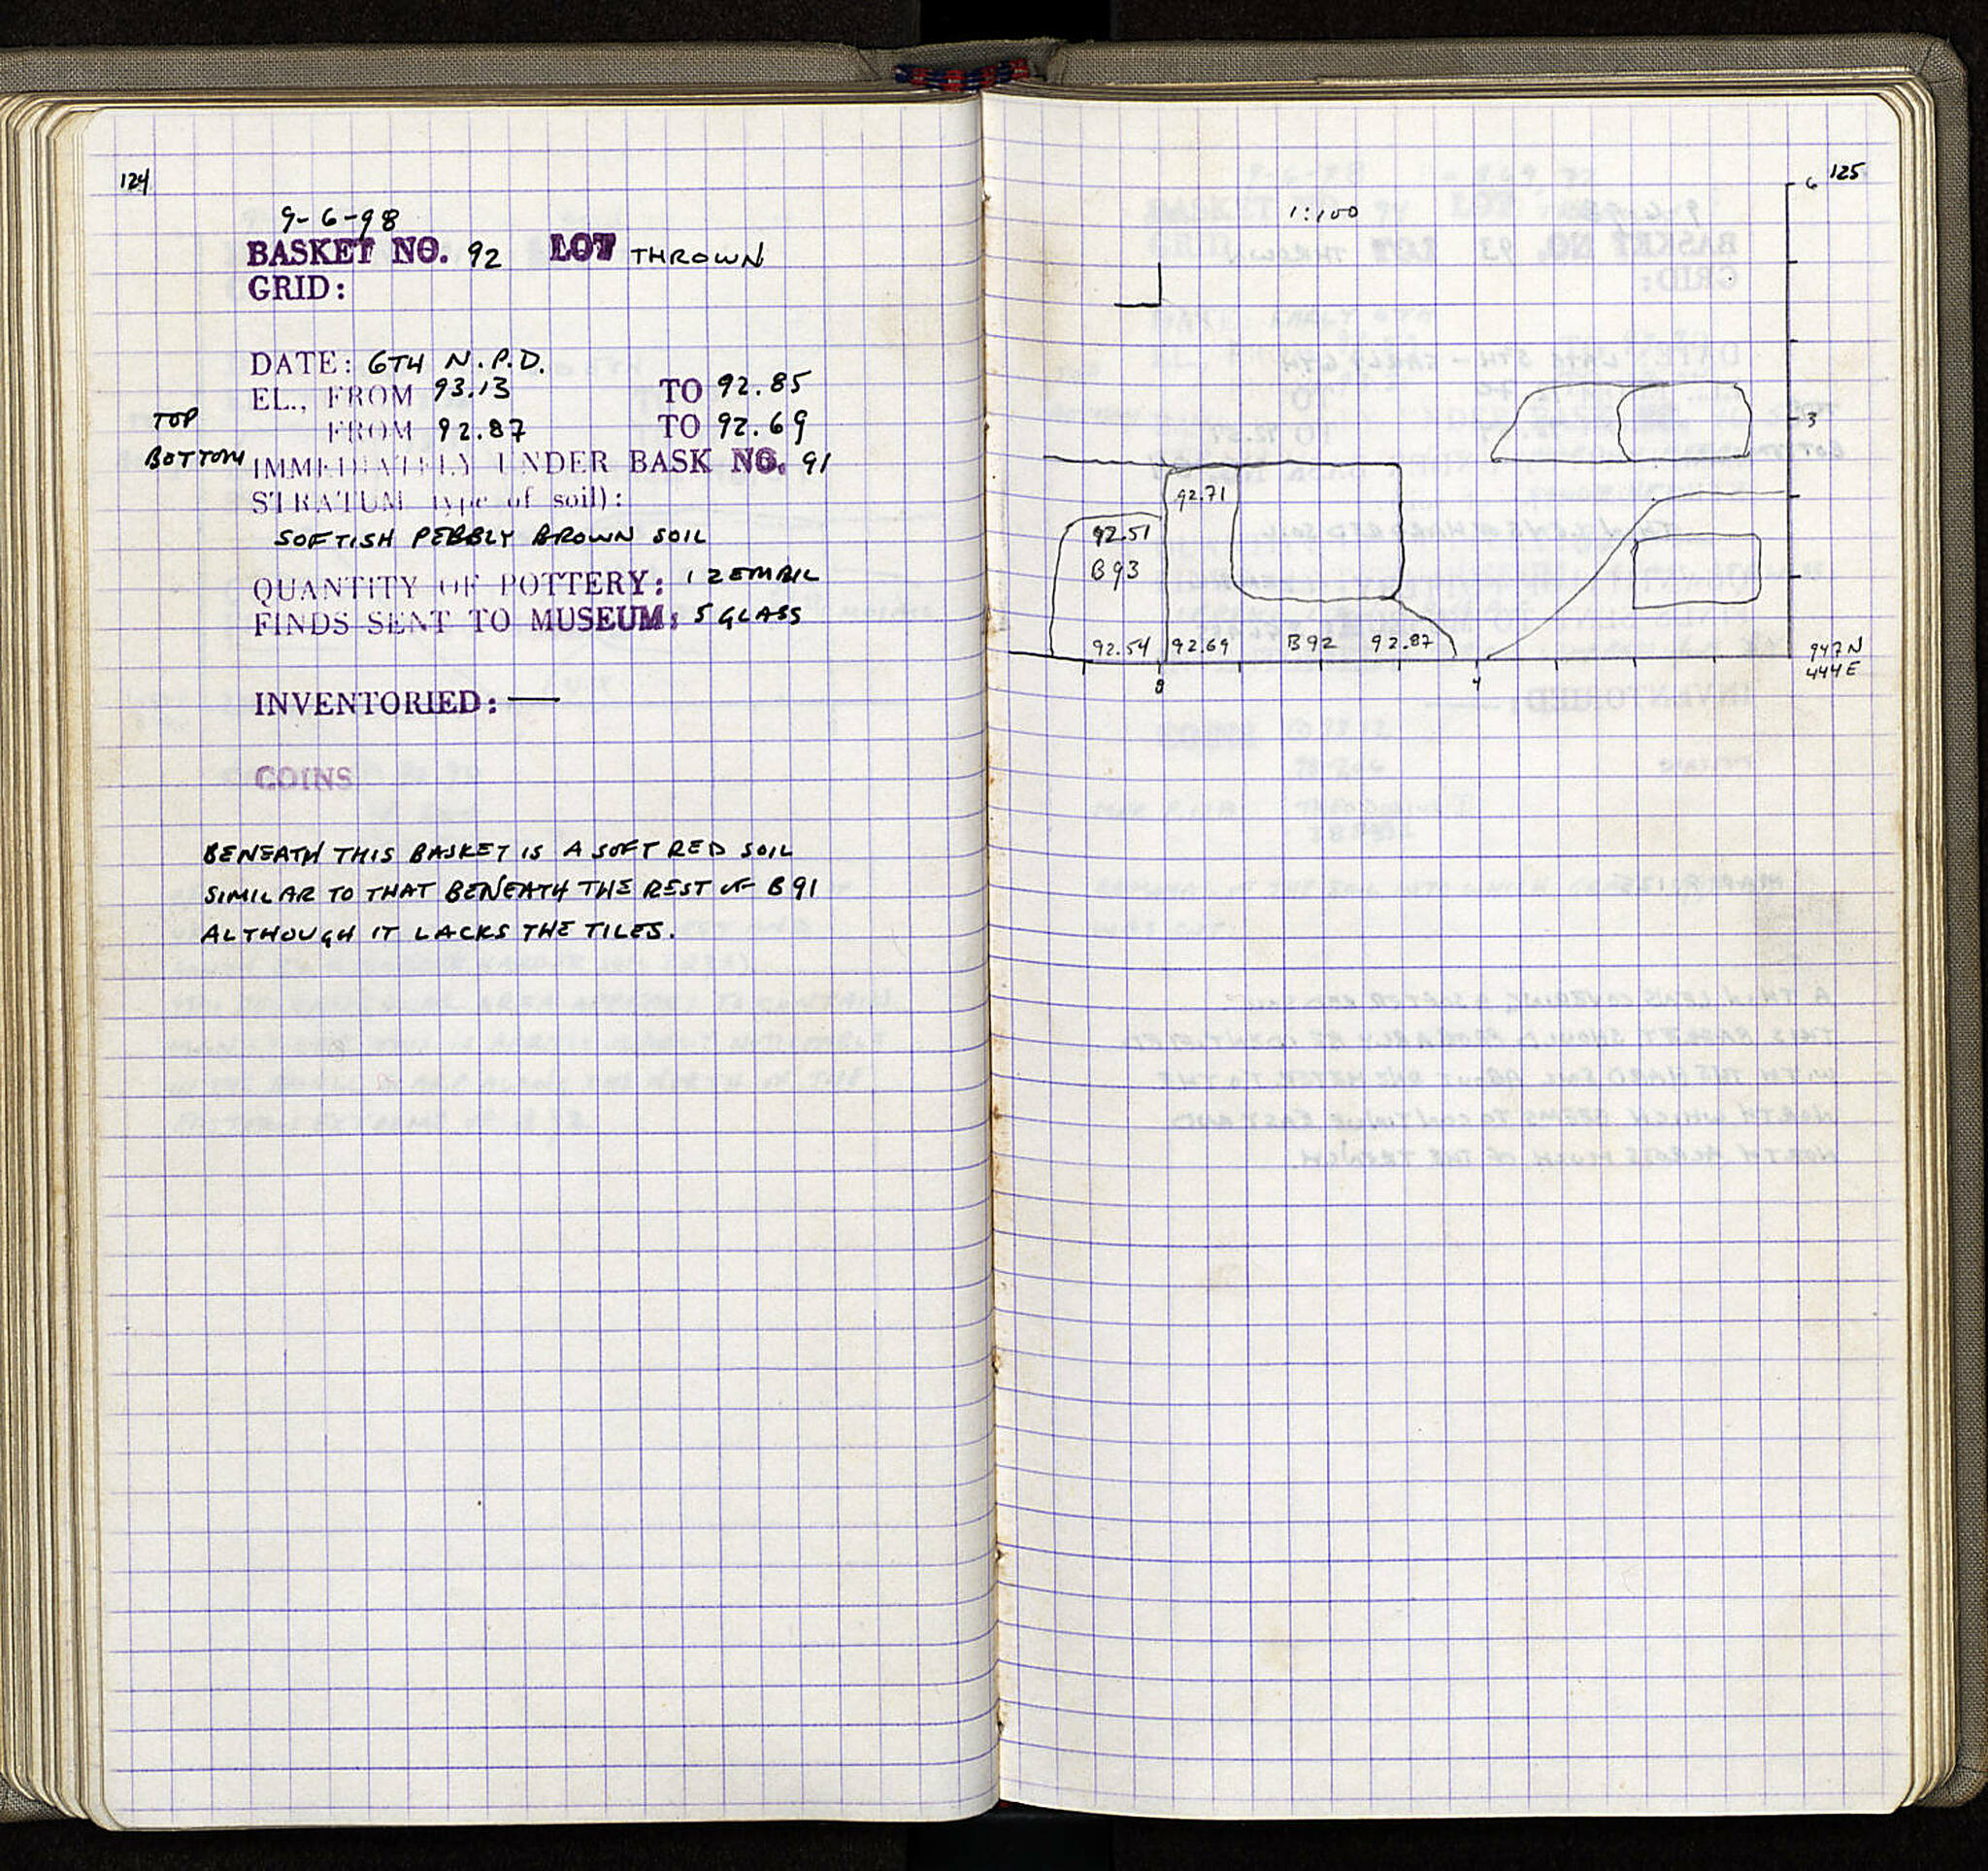 124
9-6-98
BASKET NO. 92 LOT THROWN
GRID:
DATE: 6TH N.P.D.
EL., FROM 93.13 TO 92.85
TOP FROM 92.87 TO 92.69
BOTTOM IMMEDIATELY UNDER BASK NO. 91
STRATUM type of soil):
SOFTISH PEBBLY BROWN SOIL
QUANTITY OF POTTERY: 1 ZEMBIL
FINDS SENT TO MUSEUM: 5 GLASS
INVENTORIED: —
COINS
BENEATH THIS BASKET IS A SOFT RED SOIL
SIMILAR TO THAT BENEATH THE REST OF B91
ALTHOUGH IT LACKS THE TILES.
125
6
1:100
3
92.71
92.51
B93
92.54 92.69 B92 92.87
947N
444E
8 4